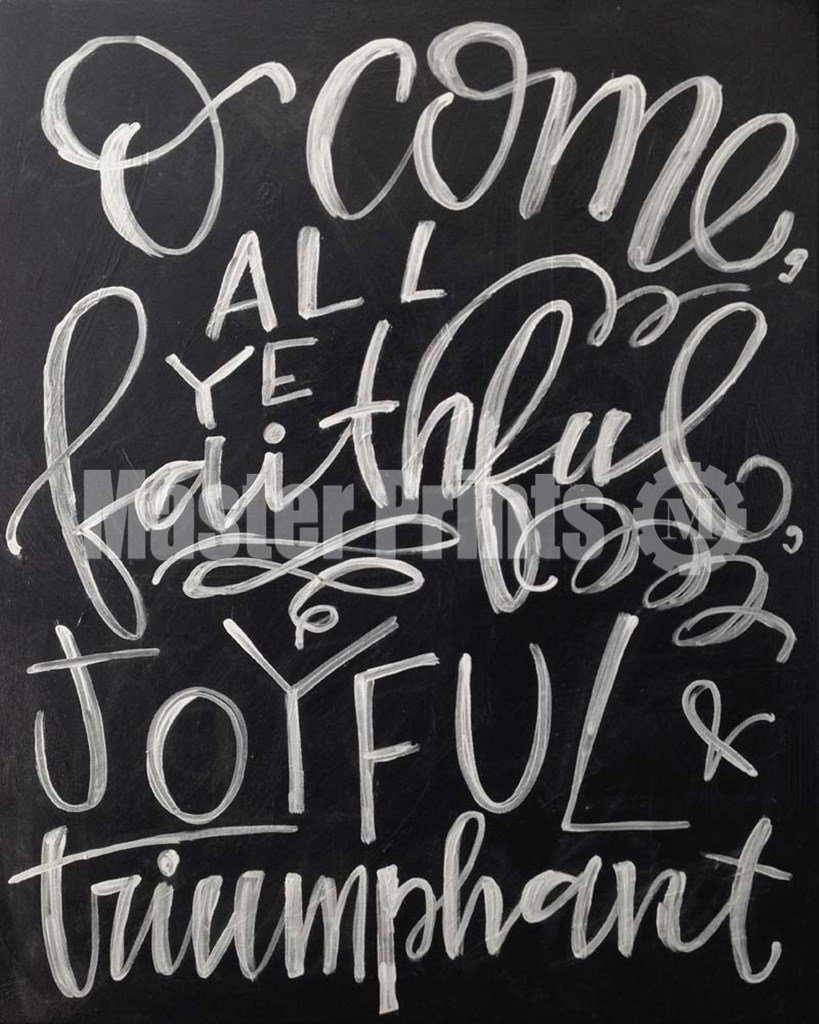 O come,
ALL
YE
faithful,
Master Prints M
JOYFUL &
triumphant